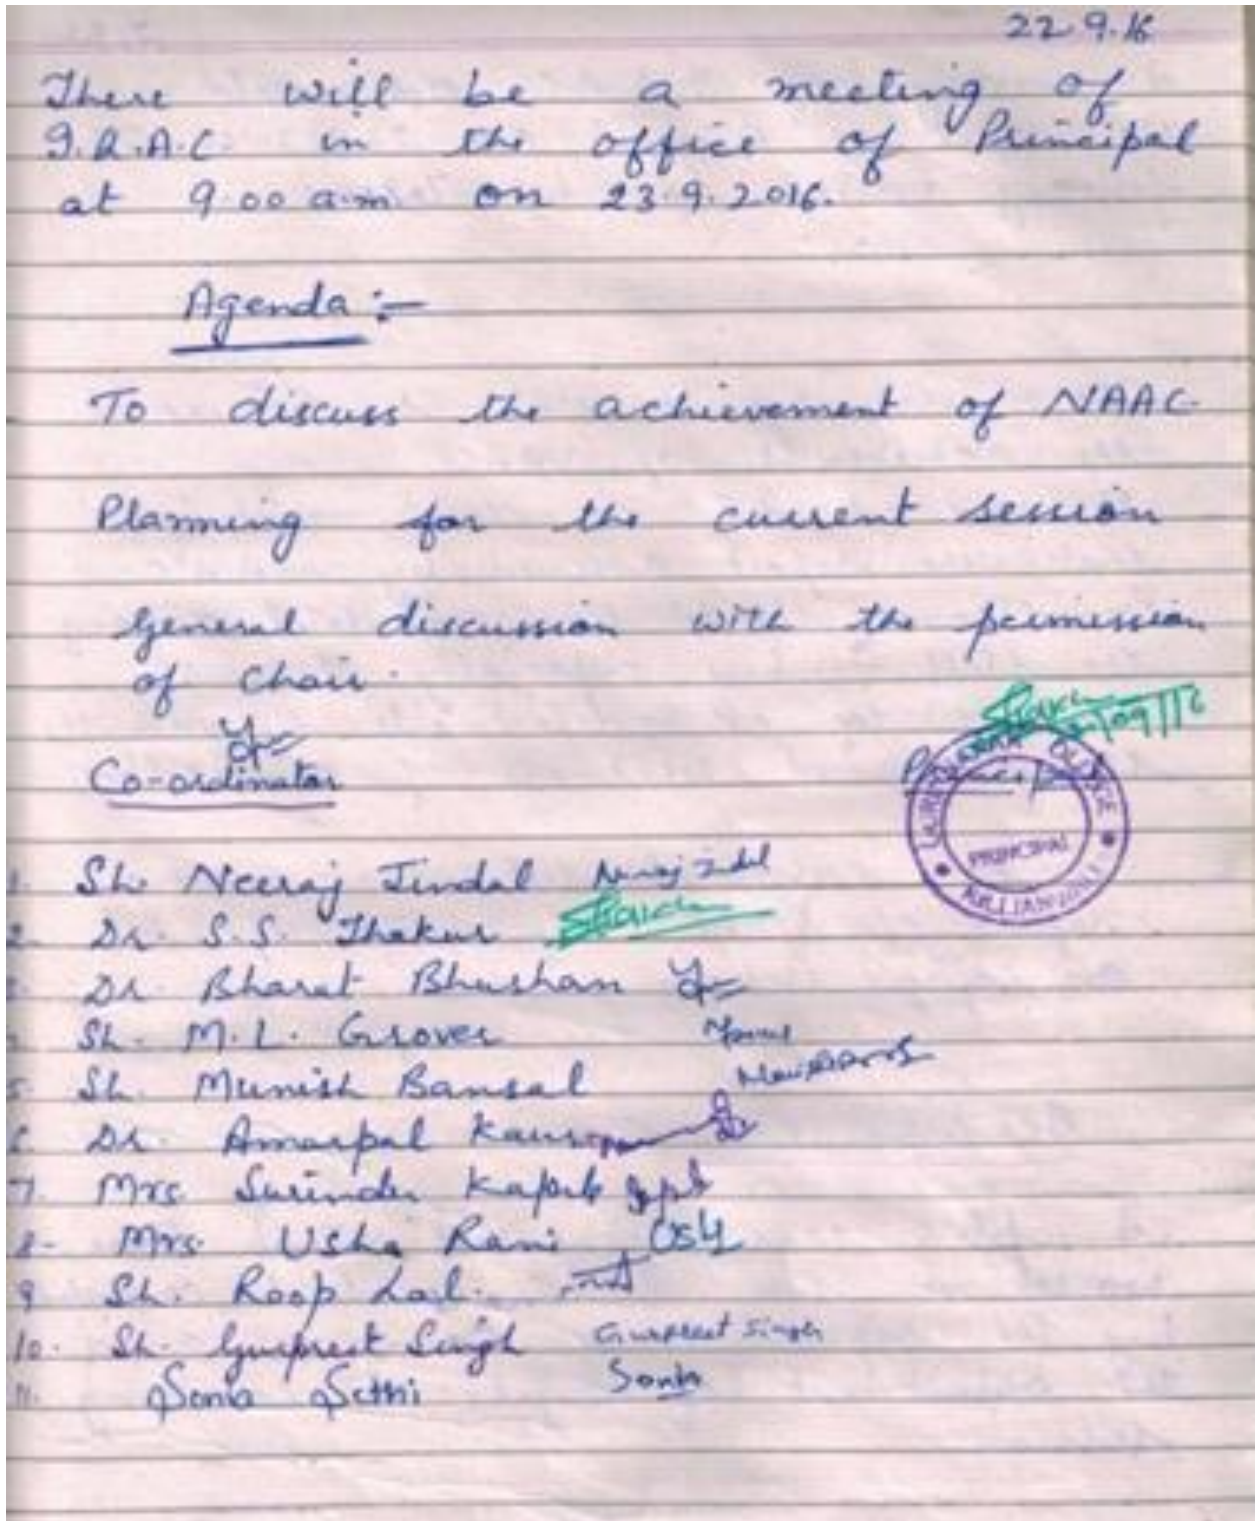 22.9.16
There will be a meeting of
I.Q.A.C. in the office of Principal
at 9.00 a.m. on 23.9.2016.
Agenda :-
To discuss the achievement of NAAC
Planning for the current session
General discussion with the permission
of chair.
Co-ordinator
Principal
PRINCIPAL
1. Sh. Neeraj Jindal Neeraj Jindal
2. Dr. S.S. Thakur
Dr. Bharat Bhushan
Sh. M.L. Grover
5. Sh. Munish Bansal
6. Dr. Amarpal Kaur
7. Mrs. Surinder
8- Mrs. Usha Rani
9 Sh. Roop Lal.
10. Sh. Gurpreet Singh Gurpreet Singh
11. Sonia Sethi Sonia